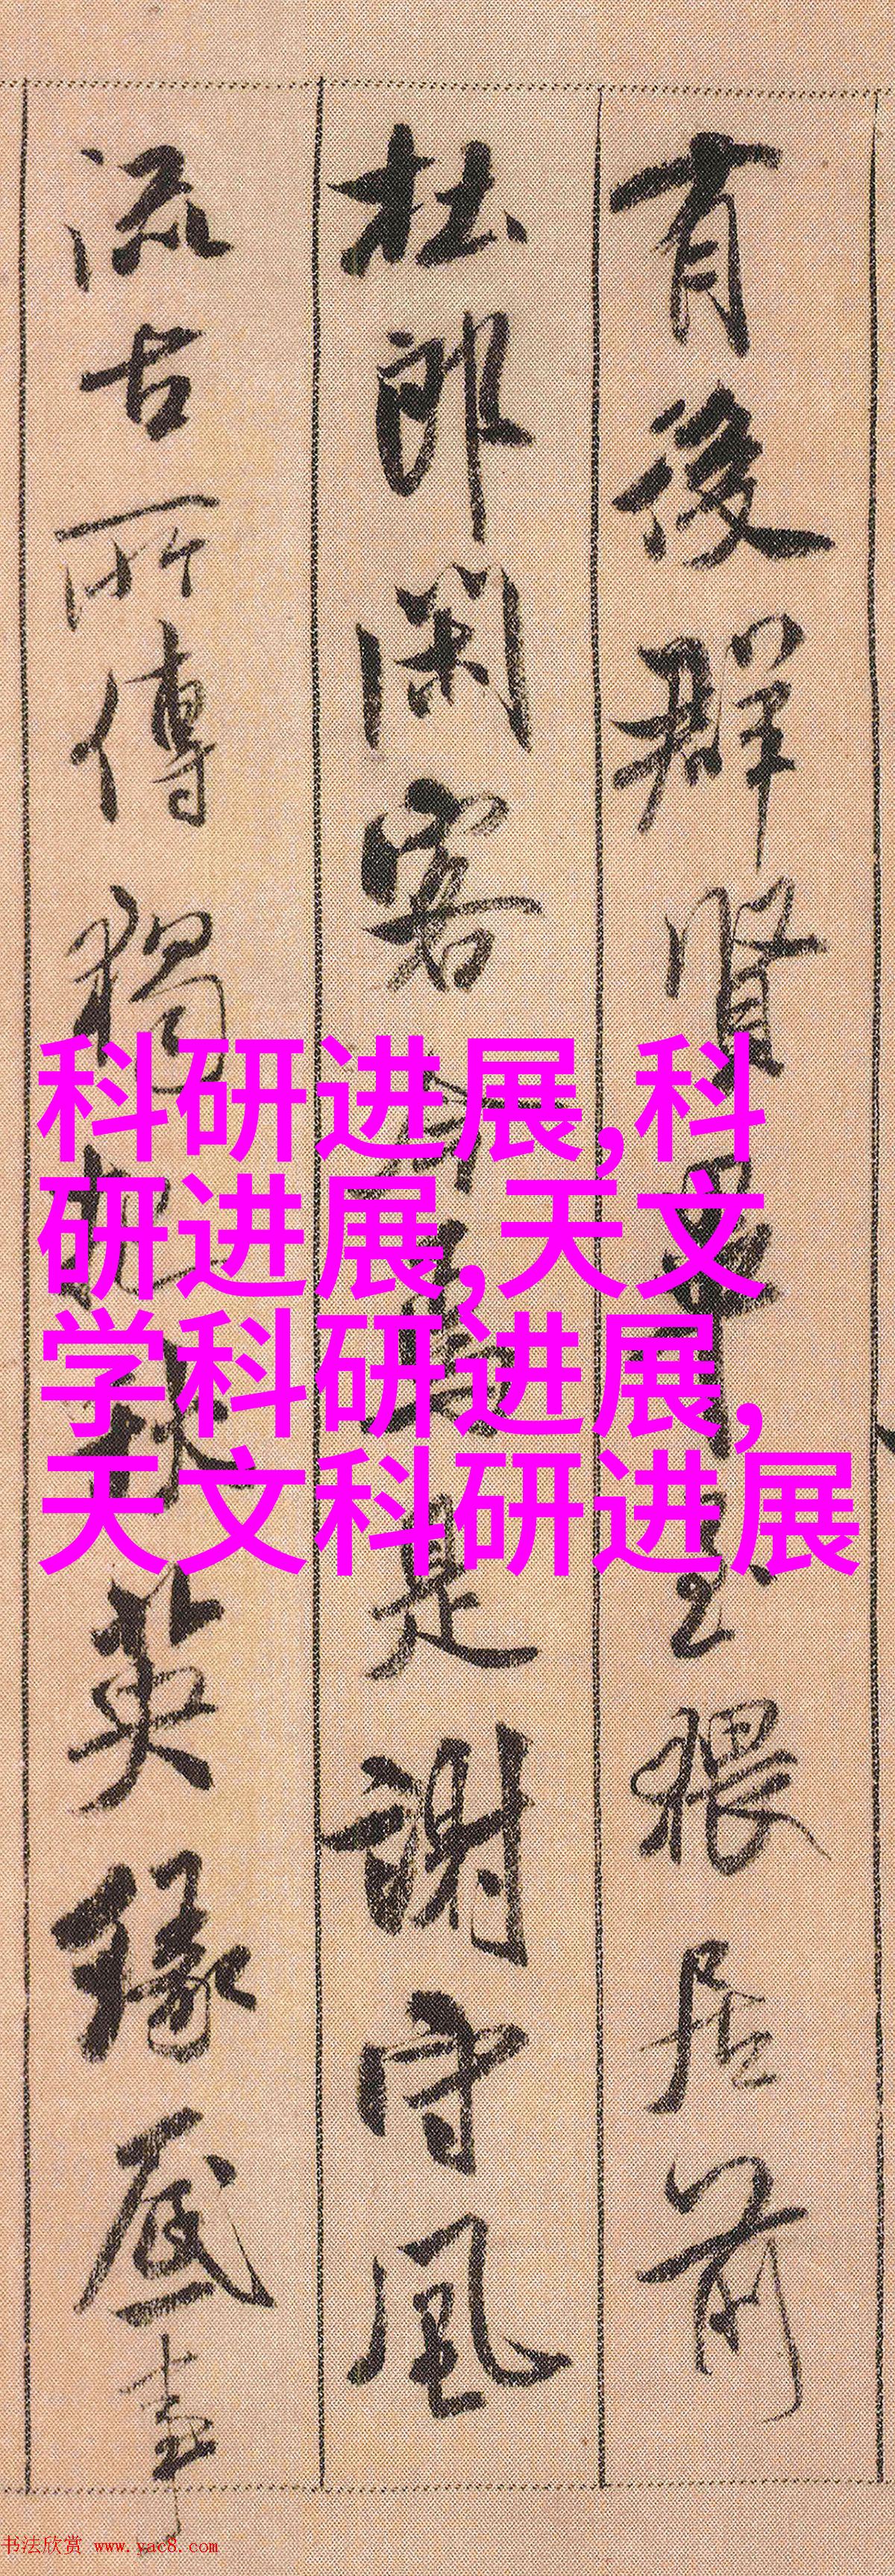 有後群賢畢至猥居前
杜郎閑客今焉是謝守風
流古所傳獨把秋英緣底事
科研进展,科
研进展,天文
学科研进展,
天文科研进展
书法欣赏 www.yac8.com